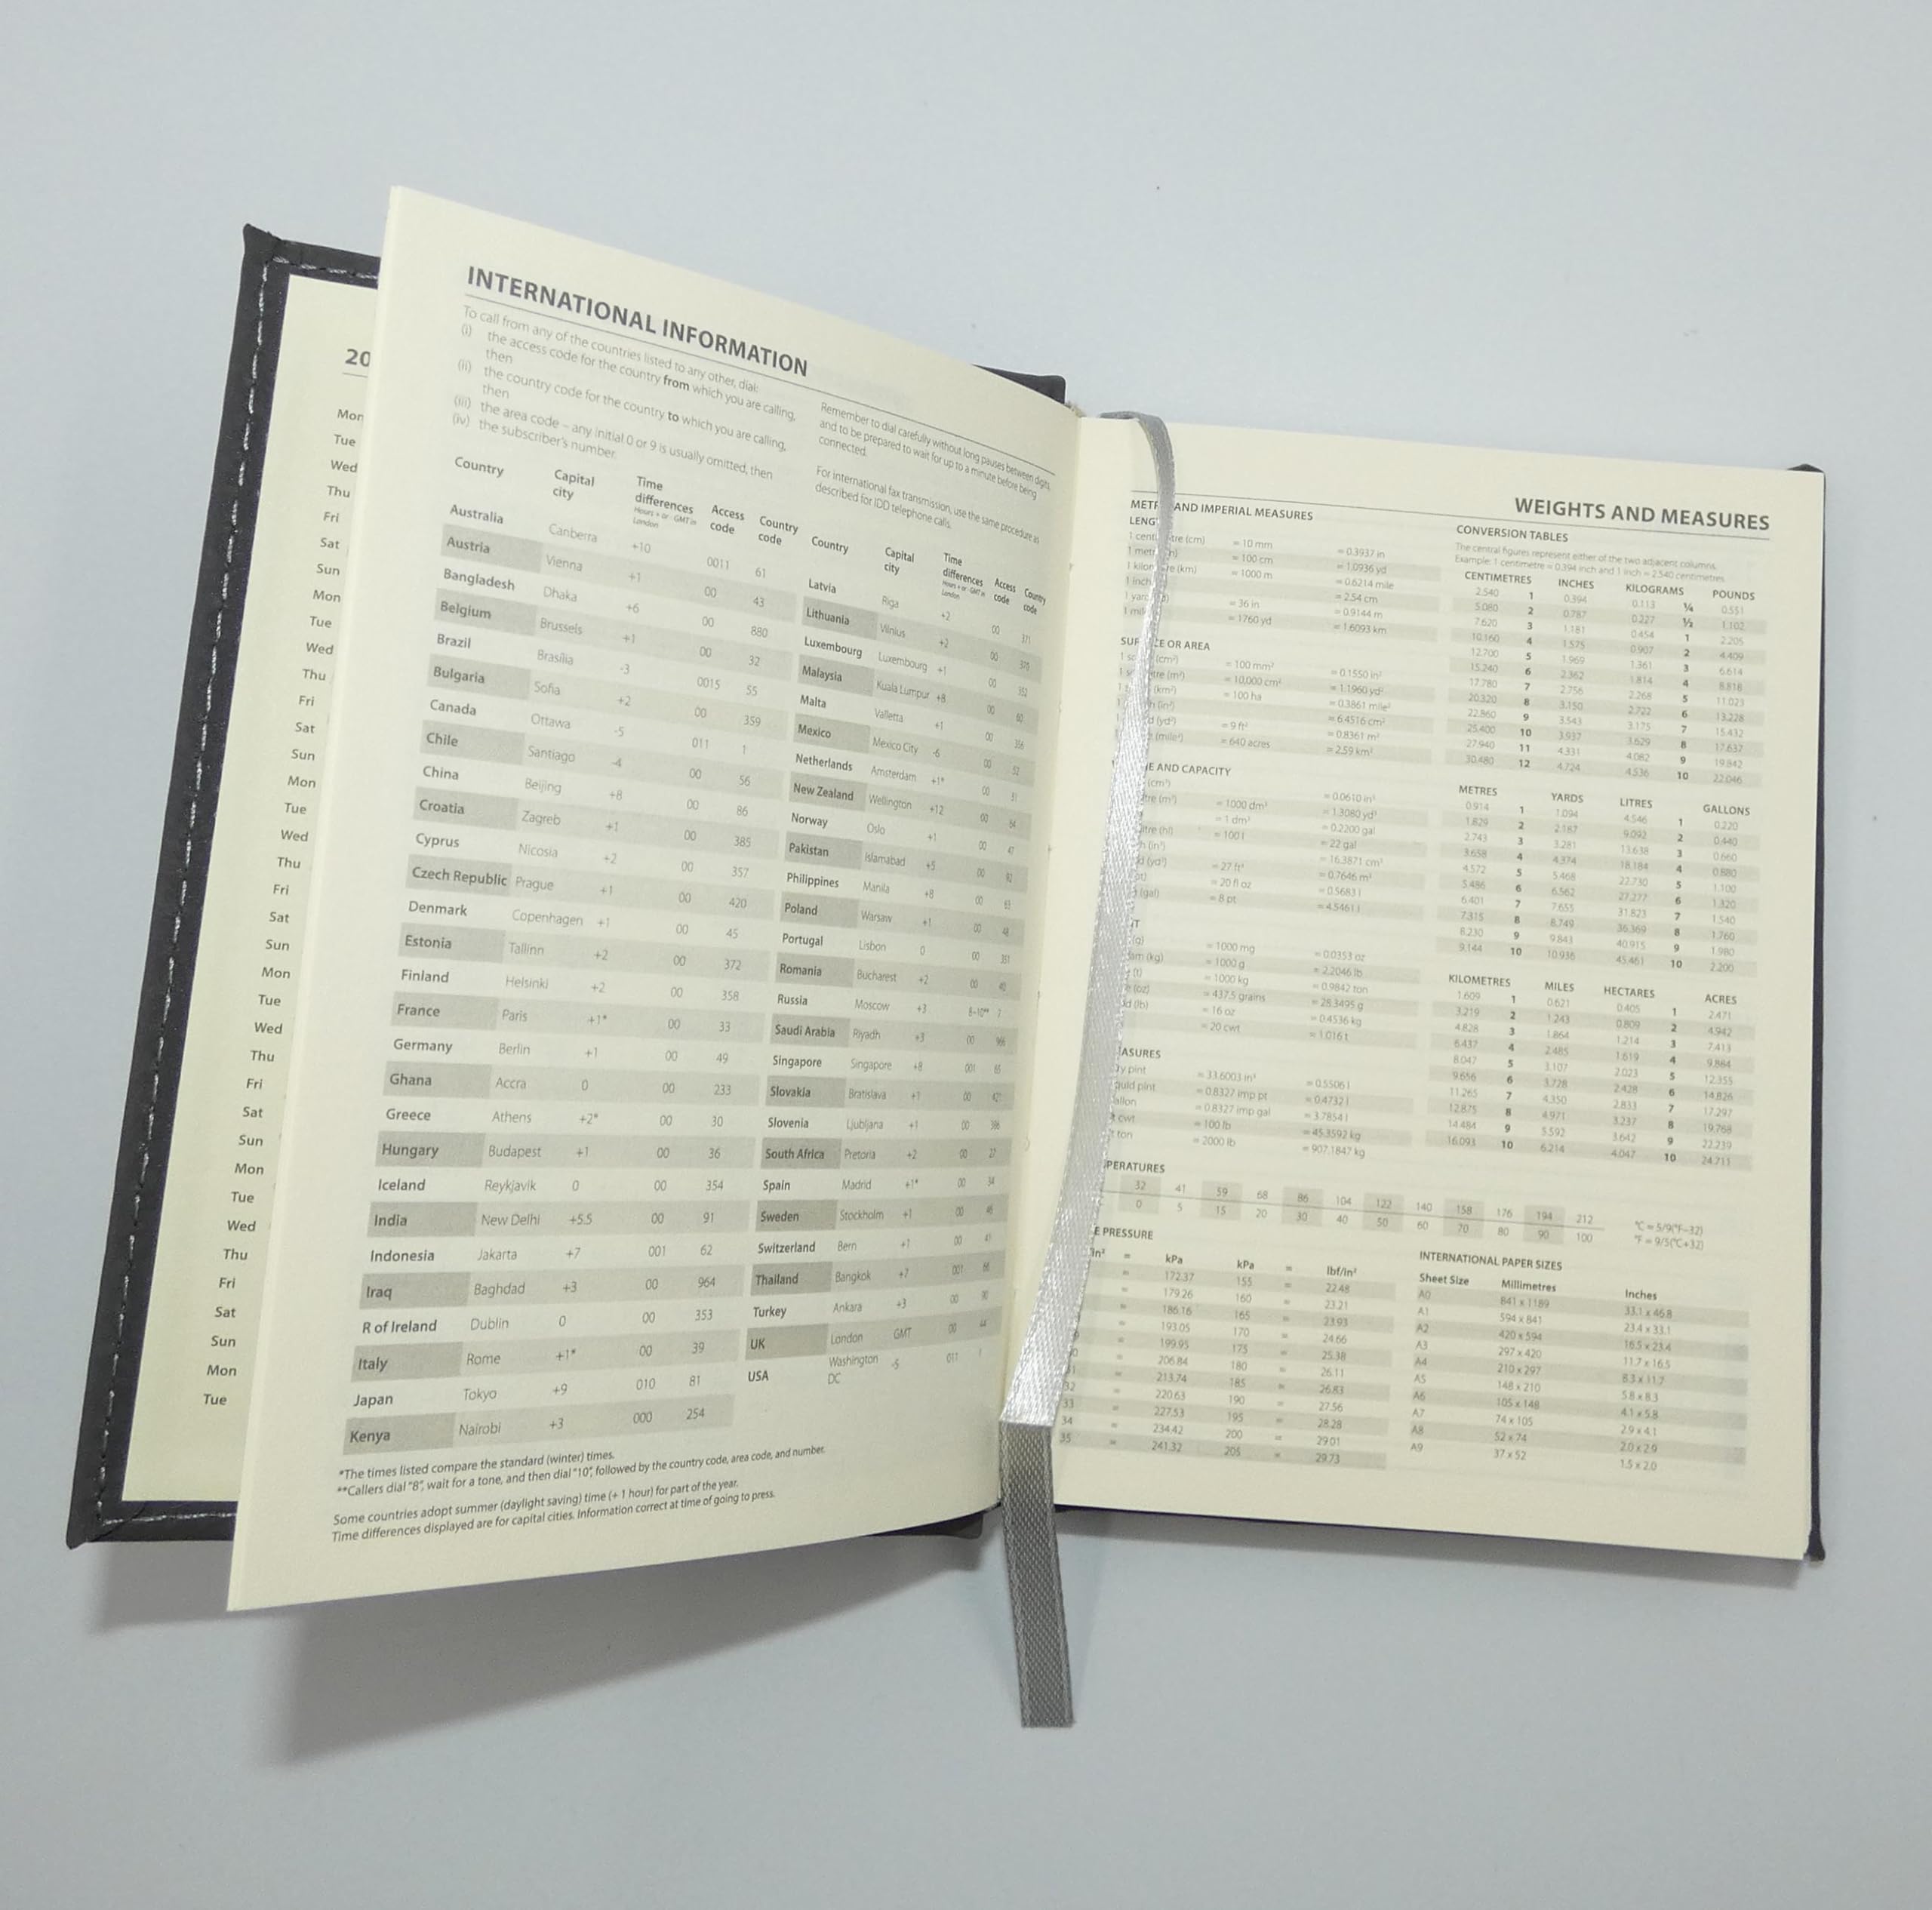 20
Mon
Tue
Wed
Thu
Fri
Sat
Sun
Mon
Tue
Wed
Thu
Fri
Sat
Sun
Mon
Tue
Wed
Thu
Fri
Sat
Sun
Mon
Tue
Wed
Thu
Fri
Sat
Sun
Mon
Tue
Wed
Thu
Fri
Sat
Sun
Mon
Tue
INTERNATIONAL INFORMATION
To call from any of the countries listed to any other, dial:
(i) the access code for the country from which you are calling,
then
(ii) the country code for the country to which you are calling,
then
(iii) the area code – any initial 0 or 9 is usually omitted, then
(iv) the subscriber's number.
Remember to dial carefully without long pauses between digits,
and to be prepared to wait for up to a minute before being
connected.
For international fax transmission, use the same procedure as
described for IDD telephone calls.
Country Capital city Time differences Hours + or - GMT in London Access code Country code
Australia Canberra +10 0011 61
Austria Vienna +1 00 43
Bangladesh Dhaka +6 00 880
Belgium Brussels +1 00 32
Brazil Brasília -3 0015 55
Bulgaria Sofia +2 00 359
Canada Ottawa -5 011 1
Chile Santiago -4 00 56
China Beijing +8 00 86
Croatia Zagreb +1 00 385
Cyprus Nicosia +2 00 357
Czech Republic Prague +1 00 420
Denmark Copenhagen +1 00 45
Estonia Tallinn +2 00 372
Finland Helsinki +2 00 358
France Paris +1* 00 33
Germany Berlin +1 00 49
Ghana Accra 0 00 233
Greece Athens +2* 00 30
Hungary Budapest +1 00 36
Iceland Reykjavik 0 00 354
India New Delhi +5.5 00 91
Indonesia Jakarta +7 001 62
Iraq Baghdad +3 00 964
R of Ireland Dublin 0 00 353
Italy Rome +1* 00 39
Japan Tokyo +9 010 81
Kenya Nairobi +3 000 254
Country Capital city Time differences Hours + or - GMT in London Access code Country code
Latvia Riga +2 00 371
Lithuania Vilnius +2 00 370
Luxembourg Luxembourg +1 00 352
Malaysia Kuala Lumpur +8 00 60
Malta Valletta +1 00 356
Mexico Mexico City -6 00 52
Netherlands Amsterdam +1* 00 31
New Zealand Wellington +12 00 64
Norway Oslo +1 00 47
Pakistan Islamabad +5 00 92
Philippines Manila +8 00 63
Poland Warsaw +1 00 48
Portugal Lisbon 0 00 351
Romania Bucharest +2 00 40
Russia Moscow +3 8–10** 7
Saudi Arabia Riyadh +3 00 966
Singapore Singapore +8 001 65
Slovakia Bratislava +1 00 421
Slovenia Ljubljana +1 00 386
South Africa Pretoria +2 00 27
Spain Madrid +1* 00 34
Sweden Stockholm +1 00 46
Switzerland Bern +1 00 41
Thailand Bangkok +7 001 66
Turkey Ankara +3 00 90
UK London GMT 00 44
USA Washington DC -5 011 1
*The times listed compare the standard (winter) times.
**Callers dial "8", wait for a tone, and then dial "10", followed by the country code, area code, and number.
Some countries adopt summer (daylight saving) time (+ 1 hour) for part of the year.
Time differences displayed are for capital cities. Information correct at time of going to press.
WEIGHTS AND MEASURES
AND IMPERIAL MEASURES
LENG
(cm) = 10 mm = 0.3937 in
= 100 cm = 1.0936 yd
(km) = 1000 m = 0.6214 mile
1 inch = 2.54 cm
= 36 in = 0.9144 m
= 1760 yd = 1.6093 km
OR AREA
(cm²) = 100 mm² = 0.1550 in²
(m²) = 10,000 cm² = 1.1960 yd²
(km²) = 100 ha = 0.3861 mile²
(in²) = 6.4516 cm²
(yd²) = 9 ft² = 0.8361 m²
(mile²) = 640 acres = 2.59 km²
AND CAPACITY
(cm³) = 0.0610 in³
(m³) = 1000 dm³ = 1.3080 yd³
= 1 dm³ = 0.2200 gal
(hl) = 100 l = 22 gal
(in³) = 16.3871 cm³
(yd³) = 27 ft³ = 0.7646 m³
= 20 fl oz = 0.5683 l
(gal) = 8 pt = 4.5461 l
= 1000 mg = 0.0353 oz
(kg) = 1000 g = 2.2046 lb
(t) = 1000 kg = 0.9842 ton
(oz) = 437.5 grains = 28.3495 g
(lb) = 16 oz = 0.4536 kg
= 20 cwt = 1.016 t
ASURES
pint = 33.6003 in³ = 0.5506 l
pint = 0.8327 imp pt = 0.4732 l
= 0.8327 imp gal = 3.7854 l
cwt = 100 lb = 45.3592 kg
ton = 2000 lb = 907.1847 kg
PERATURES
32 41 59 68 86 104 122 140 158 176 194 212
0 5 15 20 30 40 50 60 70 80 90 100
°C = 5/9(°F–32)
°F = 9/5(°C+32)
E PRESSURE
= kPa kPa = lbf/in²
= 172.37 155 = 22.48
= 179.26 160 = 23.21
= 186.16 165 = 23.93
= 193.05 170 = 24.66
= 199.95 175 = 25.38
= 206.84 180 = 26.11
= 213.74 185 = 26.83
32 = 220.63 190 = 27.56
33 = 227.53 195 = 28.28
34 = 234.42 200 = 29.01
35 = 241.32 205 = 29.73
CONVERSION TABLES
The central figures represent either of the two adjacent columns.
Example: 1 centimetre = 0.394 inch and 1 inch = 2.540 centimetres
CENTIMETRES INCHES KILOGRAMS POUNDS
2.540 1 0.394 0.113 ¼ 0.551
5.080 2 0.787 0.227 ½ 1.102
7.620 3 1.181 0.454 1 2.205
10.160 4 1.575 0.907 2 4.409
12.700 5 1.969 1.361 3 6.614
15.240 6 2.362 1.814 4 8.818
17.780 7 2.756 2.268 5 11.023
20.320 8 3.150 2.722 6 13.228
22.860 9 3.543 3.175 7 15.432
25.400 10 3.937 3.629 8 17.637
27.940 11 4.331 4.082 9 19.842
30.480 12 4.724 4.536 10 22.046
METRES YARDS LITRES GALLONS
0.914 1 1.094 4.546 1 0.220
1.829 2 2.187 9.092 2 0.440
2.743 3 3.281 13.638 3 0.660
3.658 4 4.374 18.184 4 0.880
4.572 5 5.468 22.730 5 1.100
5.486 6 6.562 27.277 6 1.320
6.401 7 7.655 31.823 7 1.540
7.315 8 8.749 36.369 8 1.760
8.230 9 9.843 40.915 9 1.980
9.144 10 10.936 45.461 10 2.200
KILOMETRES MILES HECTARES ACRES
1.609 1 0.621 0.405 1 2.471
3.219 2 1.243 0.809 2 4.942
4.828 3 1.864 1.214 3 7.413
6.437 4 2.485 1.619 4 9.884
8.047 5 3.107 2.023 5 12.355
9.656 6 3.728 2.428 6 14.826
11.265 7 4.350 2.833 7 17.297
12.875 8 4.971 3.237 8 19.768
14.484 9 5.592 3.642 9 22.239
16.093 10 6.214 4.047 10 24.711
INTERNATIONAL PAPER SIZES
Sheet Size Millimetres Inches
A0 841 x 1189 33.1 x 46.8
A1 594 x 841 23.4 x 33.1
A2 420 x 594 16.5 x 23.4
A3 297 x 420 11.7 x 16.5
A4 210 x 297 8.3 x 11.7
A5 148 x 210 5.8 x 8.3
A6 105 x 148 4.1 x 5.8
A7 74 x 105 2.9 x 4.1
A8 52 x 74 2.0 x 2.9
A9 37 x 52 1.5 x 2.0